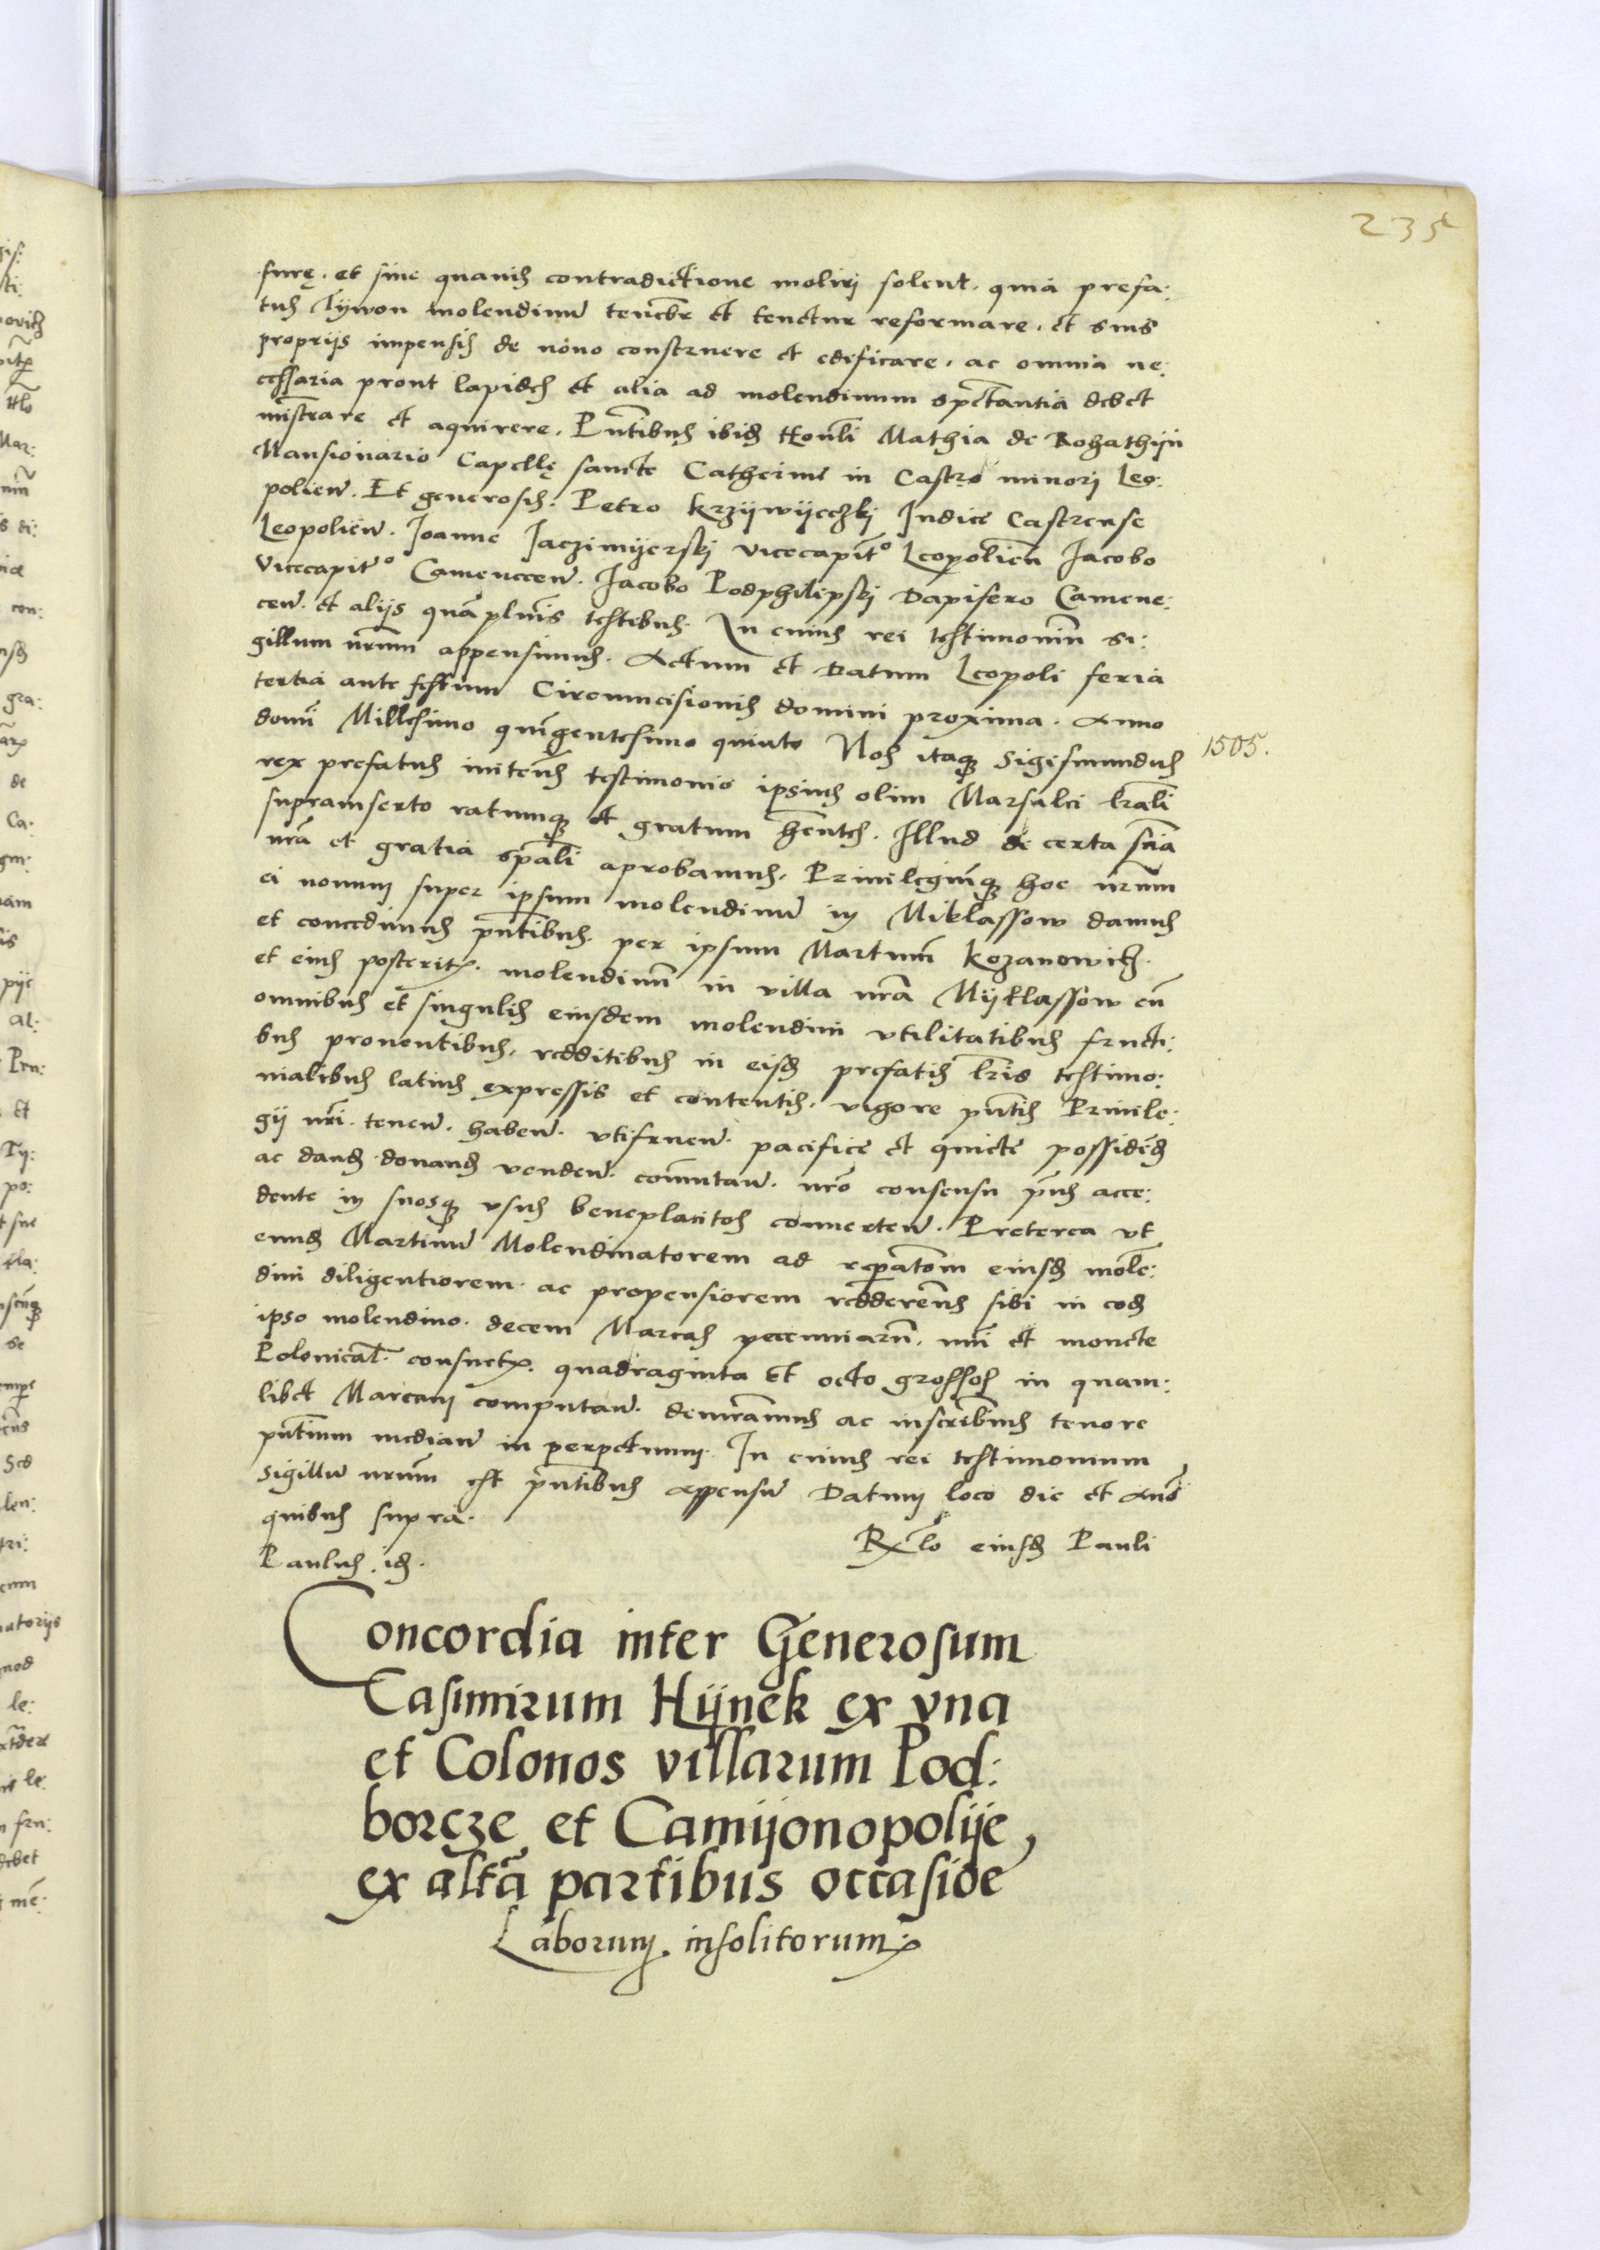 235
surę. et sine quavis contradictione moliri solent. quia prefa:
tus Tywon molendinū tenebit̄ et tenetur reformare. et suis
proprijs impensis de novo construere et edificare. ac omnia ne:
cessaria prout lapides et alia ad molendinum spectantia debet
mīstrare et aquirere. Pn̄tibus ibid̄ Hon̄li Mathia de Rohathijn
Mansionario Capellę sancte Catherine in Castro minori Leo:
polien̄. Et generosis. Petro Krzijwijeczkj Iudice Castrense
Leopolien̄. Joanne Jaczimijerskj vicecapit̄o Leopolien̄ Jacobo
Vicecapit̄o Cameneceen̄. Jacobo Podphilipskj Dapifero Camene:
cen̄. et alijs quāplurīs testibus. In cuius rei testimoniū si:
gillum nr̄um appensimus. Actum et Datum Leopoli feria
tertia ante festum Circumcisionis domini proxima. Anno
domī Millesimo quīgentesimo quinto Nos itaq̄ Sigismundus
1505.
rex prefatus initen̄s testimonio ipsius olim Marsalci līrali
suprainserto ratumq̄ et gratum hēntes. Illud de certa sciā
nrā et gratia spāli aprobamus. Privilegiūq̄ hoc nr̄um
ei novum super ipsum molendinū in Miklassow damus
et concedimus pn̄tibus. per ipsum Martinū Kozanowich.
et eius posterit. molendinū in villa nrā Mijklassow cū
omnibus et singulis eiusdem molendini utilitatibus fructi:
bus proventibus. redditibus in eisd̄ prefatis lr̄is testimo:
nialibus latius expressis et contentis. vigore pn̄tis Privile:
gij nr̄i. tenen̄. haben̄. utifruen̄. pacifice et quiete possidēd̄
ac dand̄ donand̄ venden̄. com̄utan̄. nrō consensu pri̅us acce:
dente in suosq̄ usus beneplacitos converten̄. Preterea ut
eund̄ Martinū Molendinatorem ad reparatōem eiusd̄ mole̅:
dini diligentiorem. ac propensiorem redderemus sibi in eod̄
ipso molendino. decem Marcas pecuniarū. nūi et monete
Polonicał. consuet. quadraginta et octo grossos in quam:
libet Marcam computan̄. demr̄amus ac inscribim̄us tenore
pn̄tium median̄ in perpetuum. In cuius rei testimonium
sigillū nr̄um est pn̄tibus appensū Datum loco die et Anō
quibus supra.
Rlo eiusd̄ Pauli
Paulus. id̄.
Concordia inter Generosum
Casimirum Hijnek ex vna
et Colonos villarum Pod:
borcze et Camijonopolije,
ex altā partibus occasiōe
Laborum insolitorum